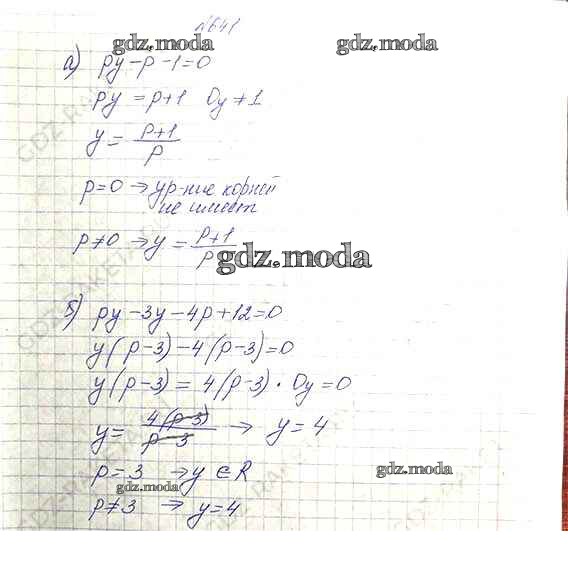 №641
gdz.moda gdz.moda
а) py - p - 1 = 0
py = p + 1 0y ≠ 1
y = \frac{p+1}{p}
p = 0 → ур-ние корней
не имеет
p ≠ 0 → y = \frac{p+1}{p}
gdz.moda
б) py - 3y - 4p + 12 = 0
y(p - 3) - 4(p - 3) = 0
y(p - 3) = 4(p - 3) · 0y = 0
y = \frac{4(p-3)}{p-3} → y = 4
p = 3 → y ∈ R
gdz.moda gdz.moda
p ≠ 3 → y = 4